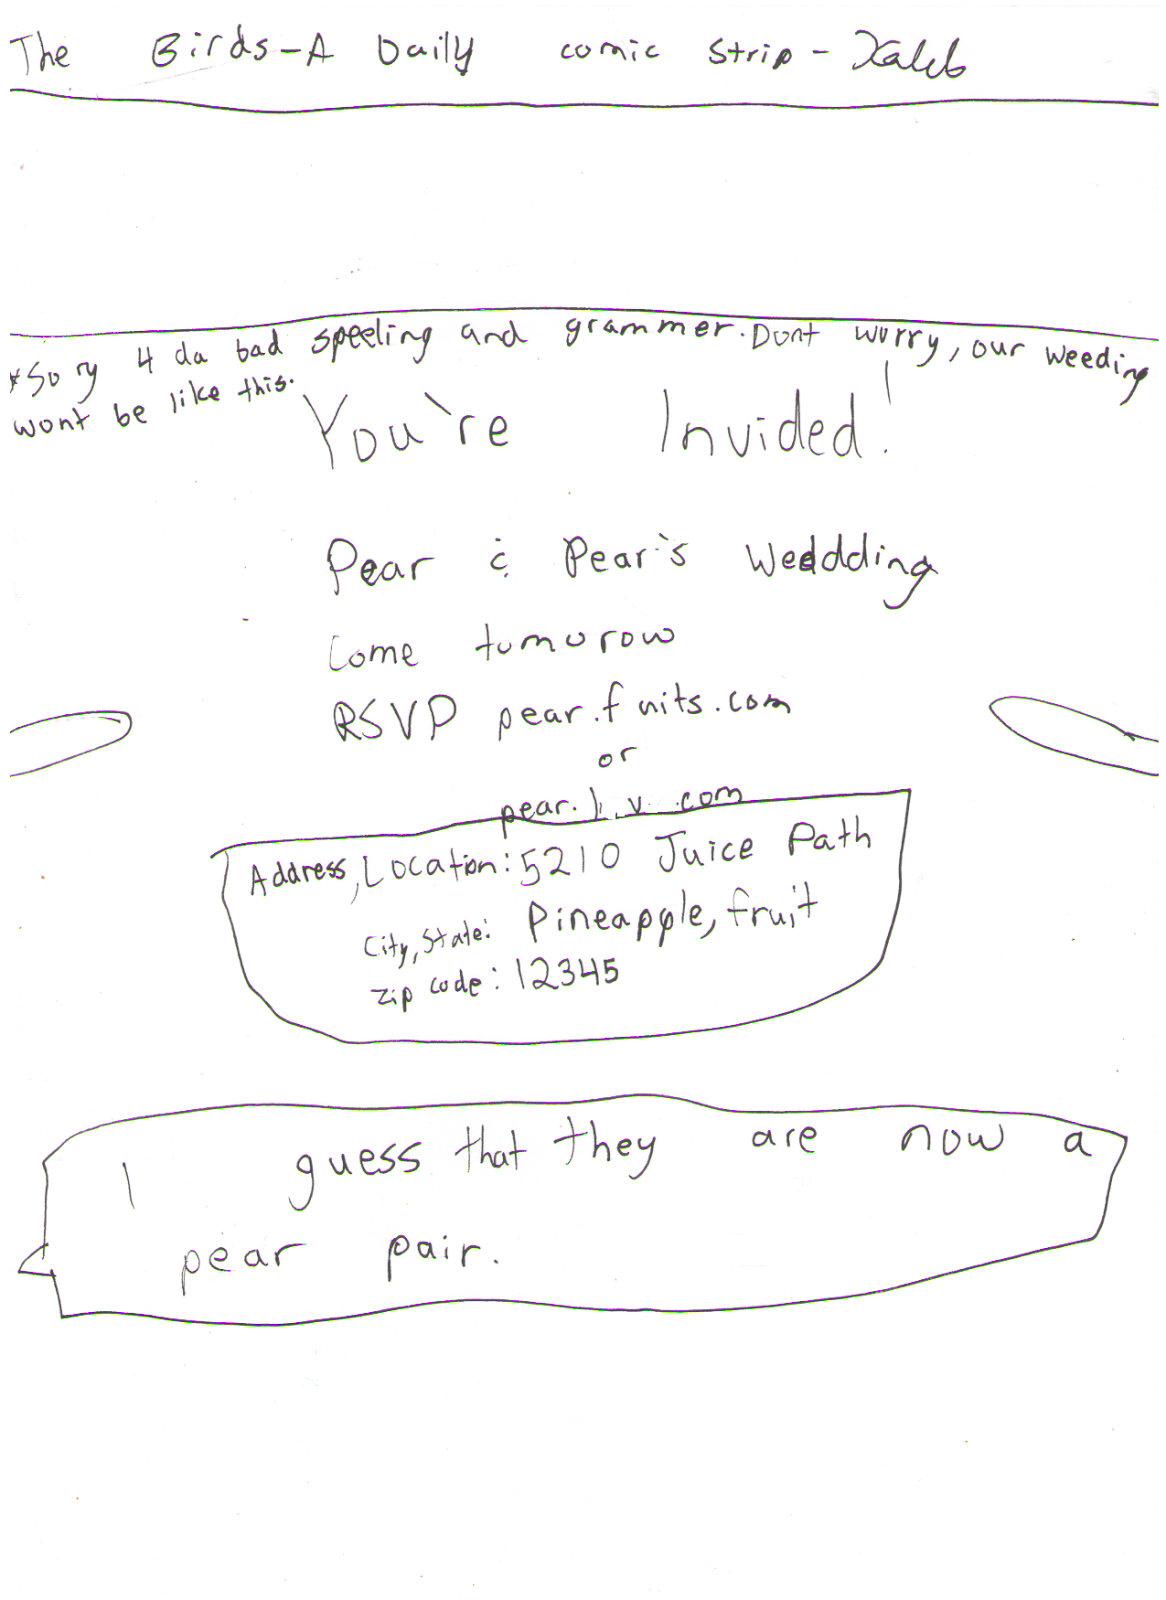 The Birds-A Daily comic strip - Kaleb
*Sory 4 da bad speeling and grammer. Dont wurry, our weeding
wont be like this.
You're Invided!
Pear & Pear's Weddding
Come tumurow
RSVP pear.fruits.com
or
pear. .com
Address, Location: 5210 Juice Path
City, State: Pineapple, fruit
Zip code: 12345
I guess that they are now a
pear pair.